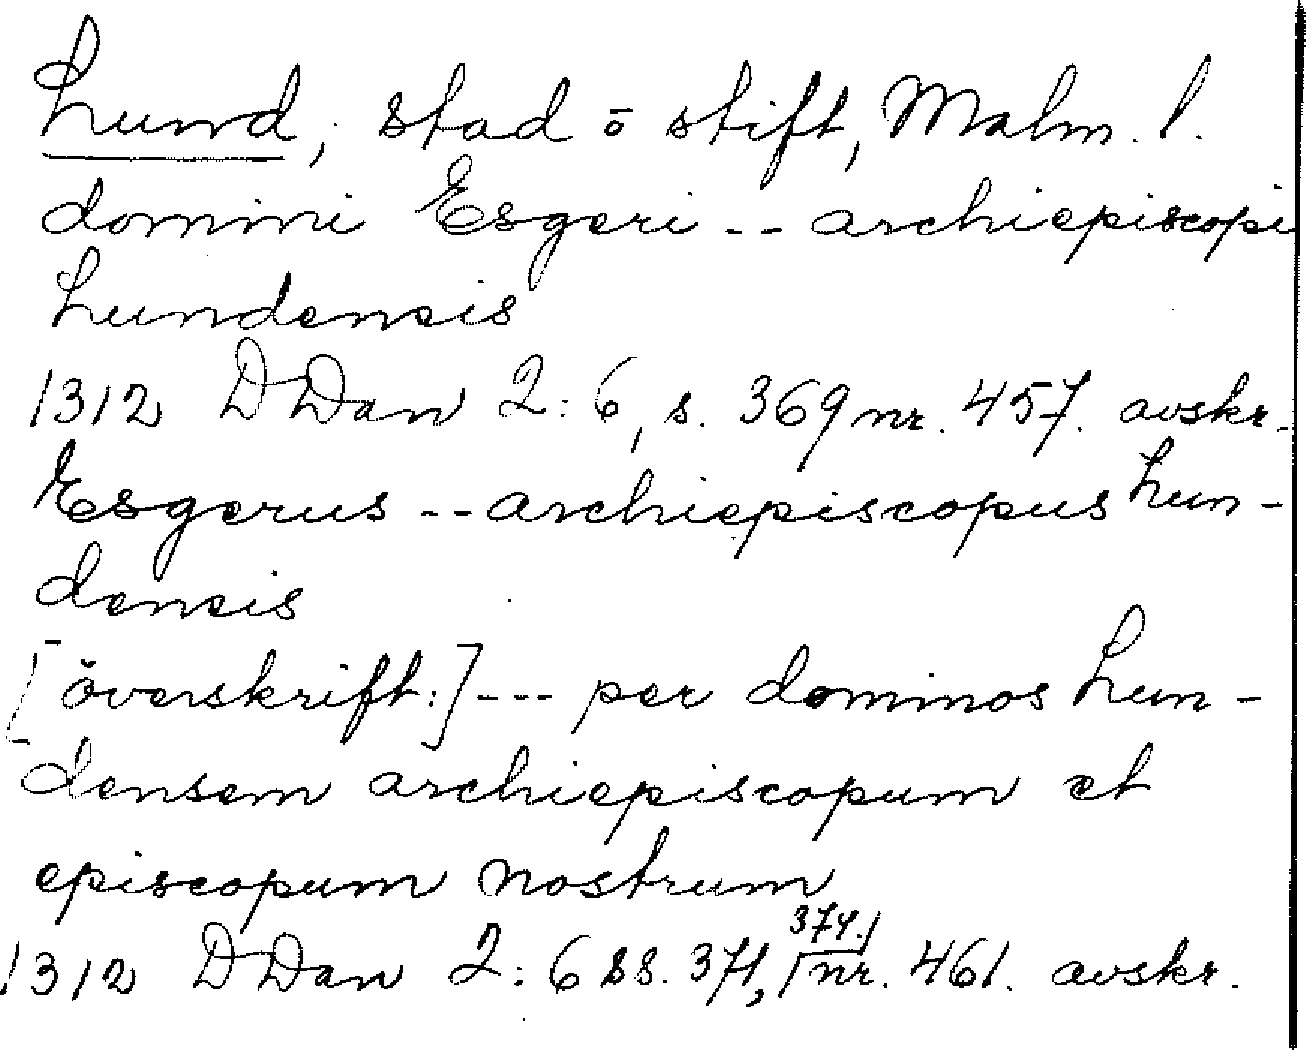 Lund, stad o stift, Malm. l.
domini Esgeri -- archiepiscopi
Lundensis
1312 DDan 2:6, s. 369 nr. 457. avskr.
Esgerus -- archiepiscopus Lun-
densis
[överskrift:] --- per dominos Lun-
densem archiepiscopum et
episcopum nostrum
1312 DDan 2:6 ss. 371, 374. nr. 461. avskr.